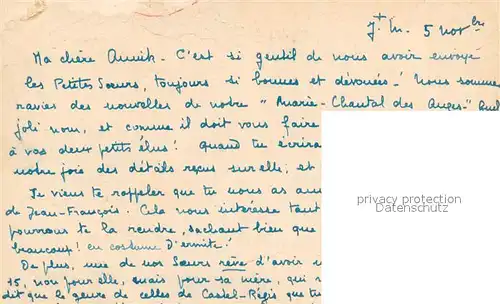 J + M. 5 nov bre
Ma chère Annik. C'est si gentil de nous avoir envoyé
les Petites Sœurs, toujours si bonnes et dévouées! Nous sommes
ravies des nouvelles de notre "Marie-Chantal des Anges". Quel
joli nom, et comme il doit vous faire
à vos deux petits élus! Quand tu écriras
notre joie des détails reçus sur elle; et
Je viens te rappeler que tu nous as
de Jean-François. Cela nous intéresse tant
pourrons te la rendre, sachant bien que
beaucoup! en costume d'ermite!
De plus, une de nos Sœurs rêve d'avoir
15, non pour elle, mais pour sa mère, qui
dit que le genre de celles de Castel-Régis que tu
privacy protection
Datenschutz